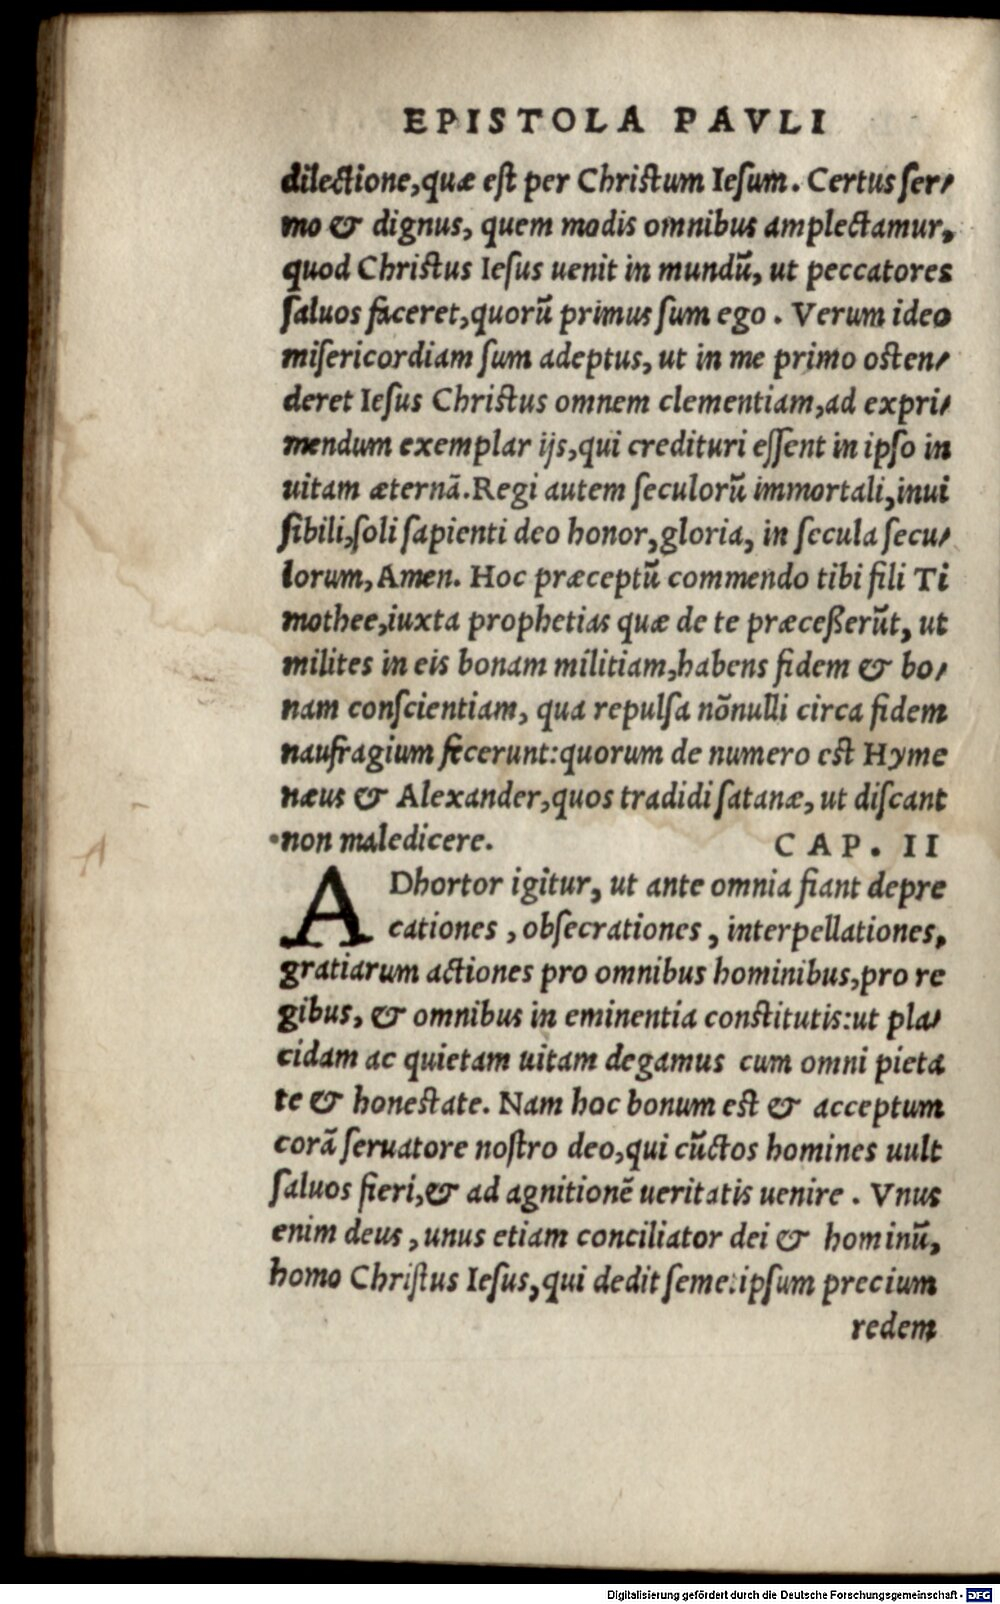 EPISTOLA PAVLI
dilectione,quæ est per Christum Iesum. Certus ser/
mo & dignus, quem modis omnibus amplectamur,
quod Christus Iesus uenit in mundū, ut peccatores
saluos faceret,quorū primus sum ego. Verum ideo
misericordiam sum adeptus, ut in me primo osten/
deret Iesus Christus omnem clementiam,ad expri/
mendum exemplar ijs,qui credituri essent in ipso in
uitam æternā.Regi autem seculorū immortali,inui
sibili,soli sapienti deo honor,gloria, in secula secu/
lorum, Amen. Hoc præceptū commendo tibi fili Ti
mothee,iuxta prophetias quæ de te præceßerūt, ut
milites in eis bonam militiam,habens fidem & bo/
nam conscientiam, qua repulsa nōnulli circa fidem
naufragium fecerunt:quorum de numero est Hyme
næus & Alexander,quos tradidi satanæ, ut discant
non maledicere. CAP. II
ADhortor igitur, ut ante omnia fiant depre
cationes, obsecrationes, interpellationes,
gratiarum actiones pro omnibus hominibus,pro re
gibus, & omnibus in eminentia constitutis:ut pla/
cidam ac quietam uitam degamus cum omni pieta
te & honestate. Nam hoc bonum est & acceptum
corā seruatore nostro deo,qui cūctos homines uult
saluos fieri,& ad agnitionē ueritatis uenire. Vnus
enim deus, unus etiam conciliator dei & hominū,
homo Christus Iesus,qui dedit semetipsum precium
redem
Digitalisierung gefördert durch die Deutsche Forschungsgemeinschaft - DFG